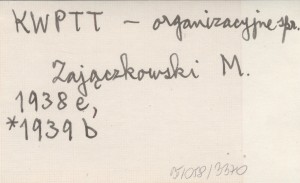 KWPTT – organizacyjne spr.
Zajączkowski M.
1938 e,
*1939 b